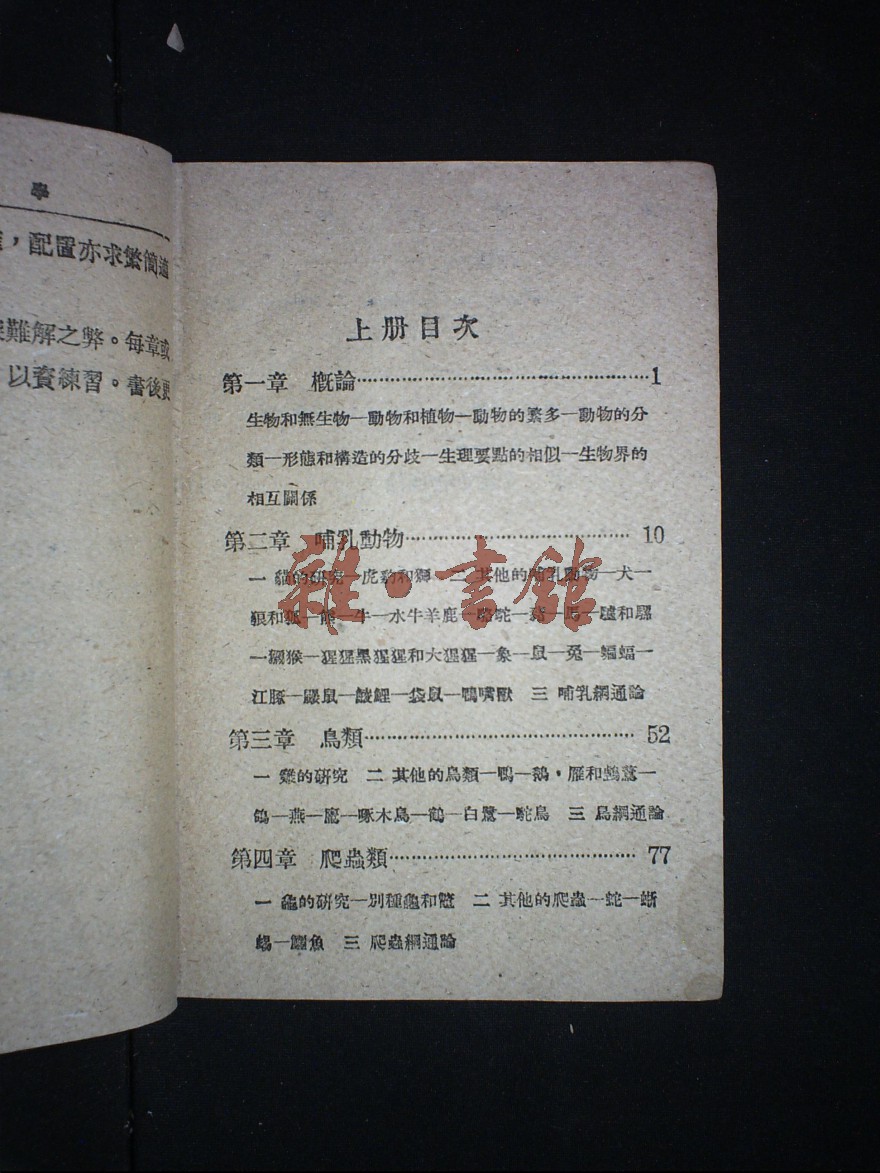 學
，配置亦求繁簡適
難解之弊。每章或
以資練習。書後更
上册目次
第一章 概論……1
生物和無生物—動物和植物—動物的繁多—動物的分
類—形態和構造的分歧—生理要點的相似—生物界的
相互關係
第二章 哺乳動物……10
一 貓的研究—虎豹和獅 二 其他的哺乳動物—犬—
狼和狐—熊—牛—水牛羊鹿—駱駝—豬—馬—驢和騾
—獼猴—猩猩黑猩猩和大猩猩—象—鼠—兔—蝙蝠—
江豚—鼴鼠—鯪鯉—袋鼠—鴨嘴獸 三 哺乳綱通論
第三章 鳥類……52
一 雞的研究 二 其他的鳥類—鴨—鵝·雁和鴛鴦—
鴿—燕—鷹—啄木鳥—鶴—白鷺—鴕鳥 三 鳥綱通論
第四章 爬蟲類……77
一 龜的研究—別種龜和鼈 二 其他的爬蟲—蛇—蜥
蜴—鱷魚 三 爬蟲綱通論
雜·書館